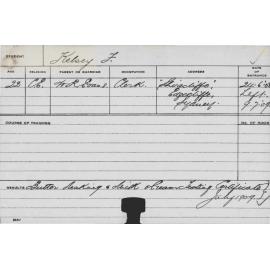 STUDENT Kelsey F.
AGE RELIGION PARENT OR GUARDIAN OCCUPATION ADDRESS DATE OF ENTRANCE
22 C.E. Clerk. Edgecliffe, Left
Sydney
COURSE OF TRAINING NO. OF WEEKS
RESULTS Butter Making & Milk & Cream Testing Certificate
July 1909